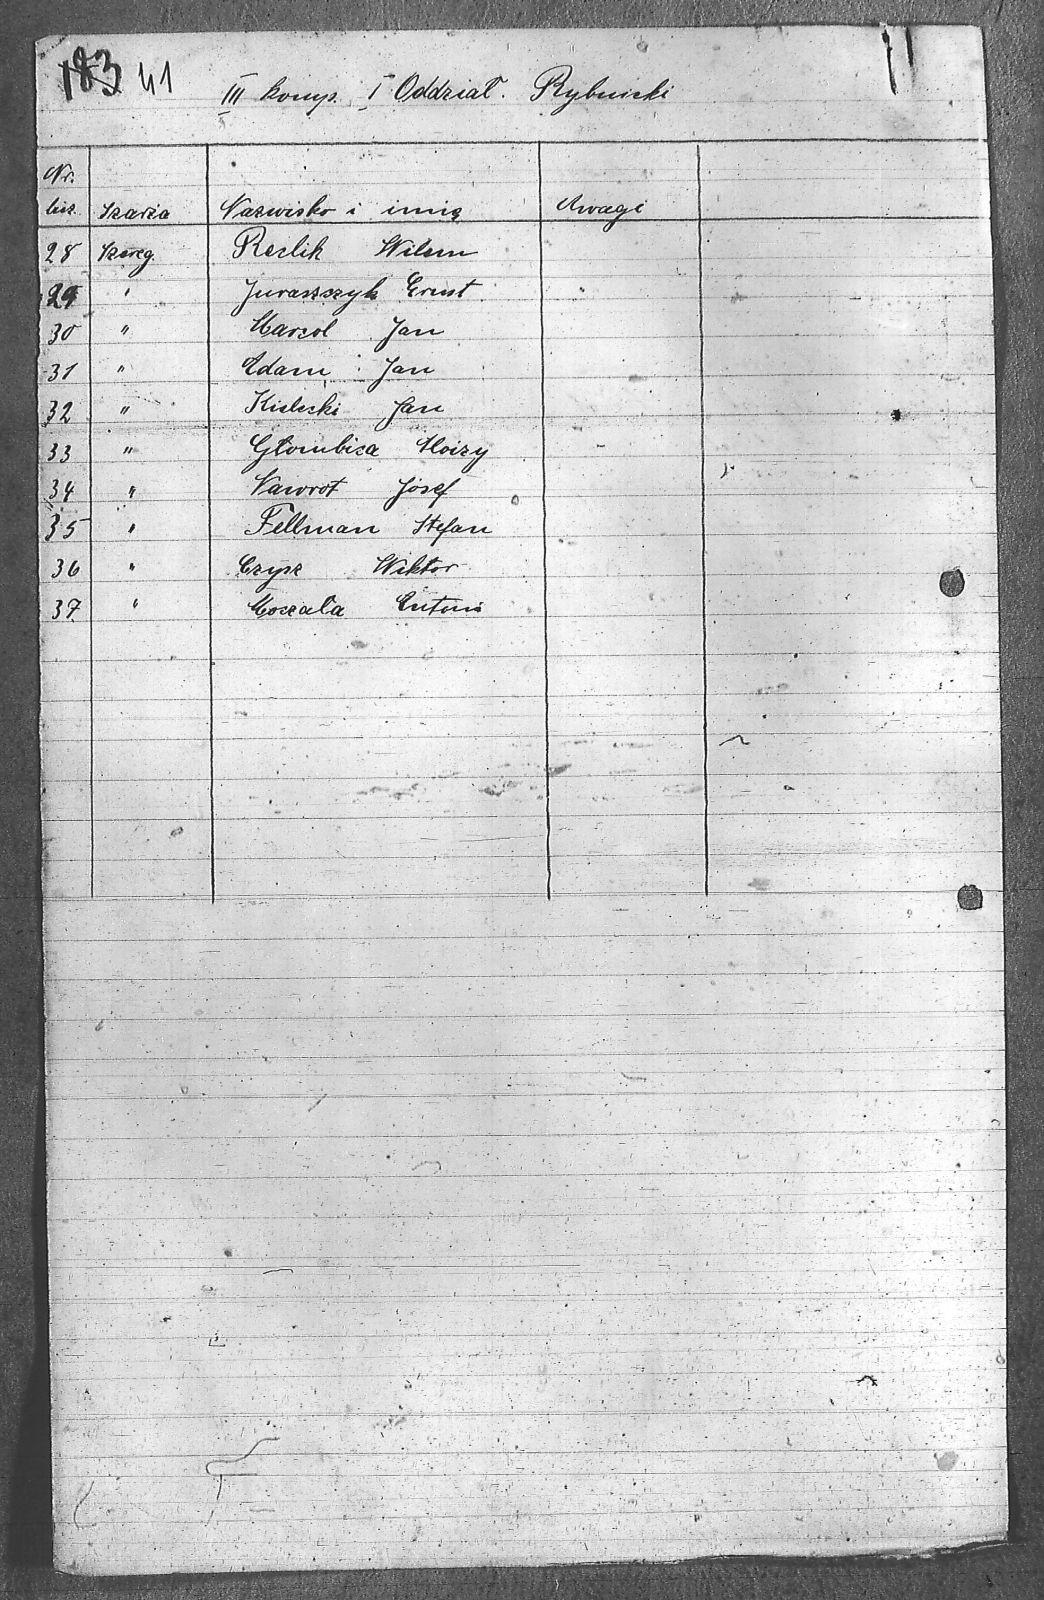 183 41
III komp. I Oddział. Rybnicki
Nr.
bież. Szarża Nazwisko i imię Uwagi
28 Szereg. Reslik Wilem
29 " Juraszczyk Ernst
30 " Marcol Jan
31 " Adam Jan
32 " Kielecki Jan
33 " Głombica Aloizy
34 " Nawrot Józef
35 " Fellman Stefan
36 " Czysz Wiktor
37 " Moczała Antoni